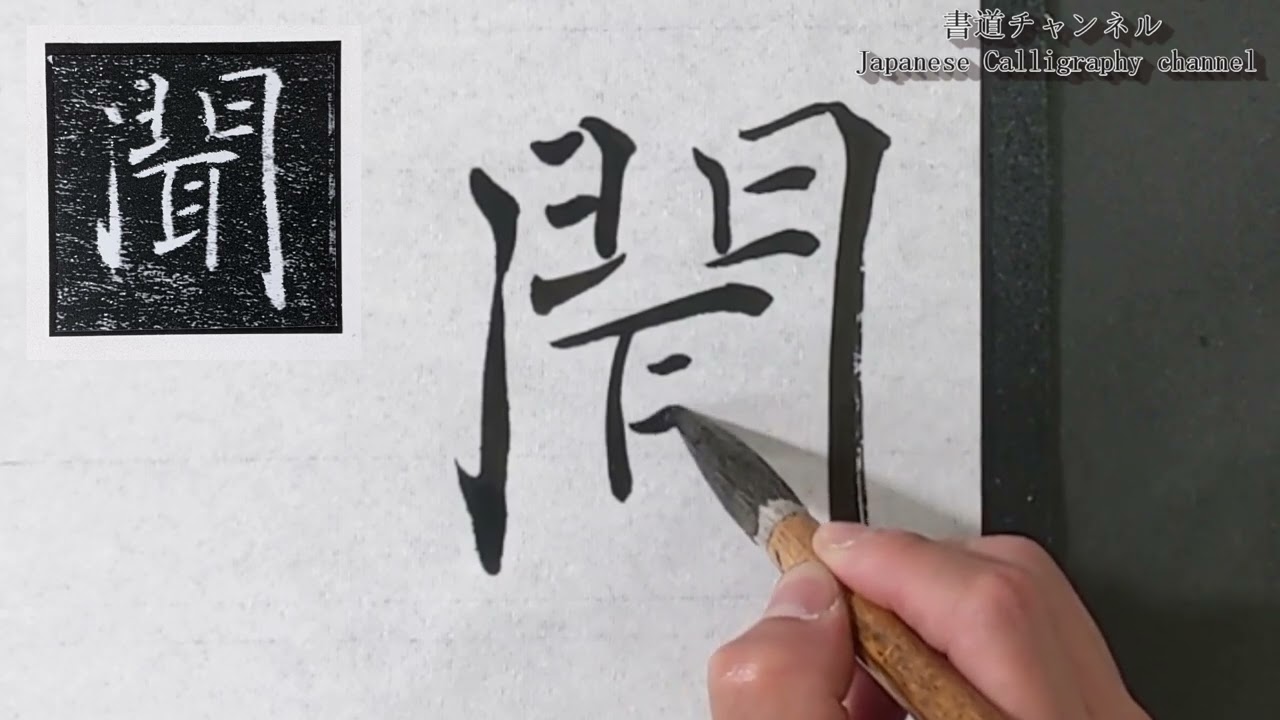 書道チャンネル
Japanese Calligraphy channel
聞
聞